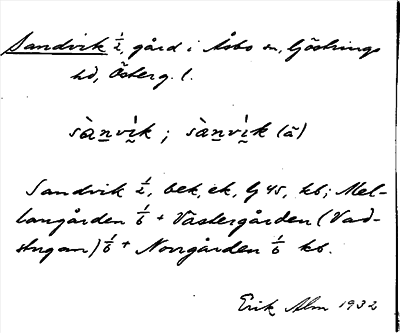 Sandvik ½, gård i Åsbo sn, Göstrings
hd, Österg. l.
sàn̲vi̲k ; sàn̲vi̲k (ā)
Sandvik ½, bek, ek, G 45, kb; Mel-
langården ⅙ + Västergården (Vad-
stugan) ⅙ + Norrgården ⅙ kb.
Erik Alm 1932